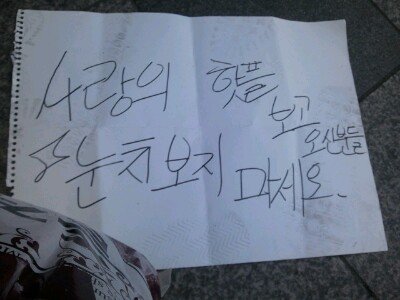 사랑의 핫픔
보고
오신분들
눈치보지 마세요.